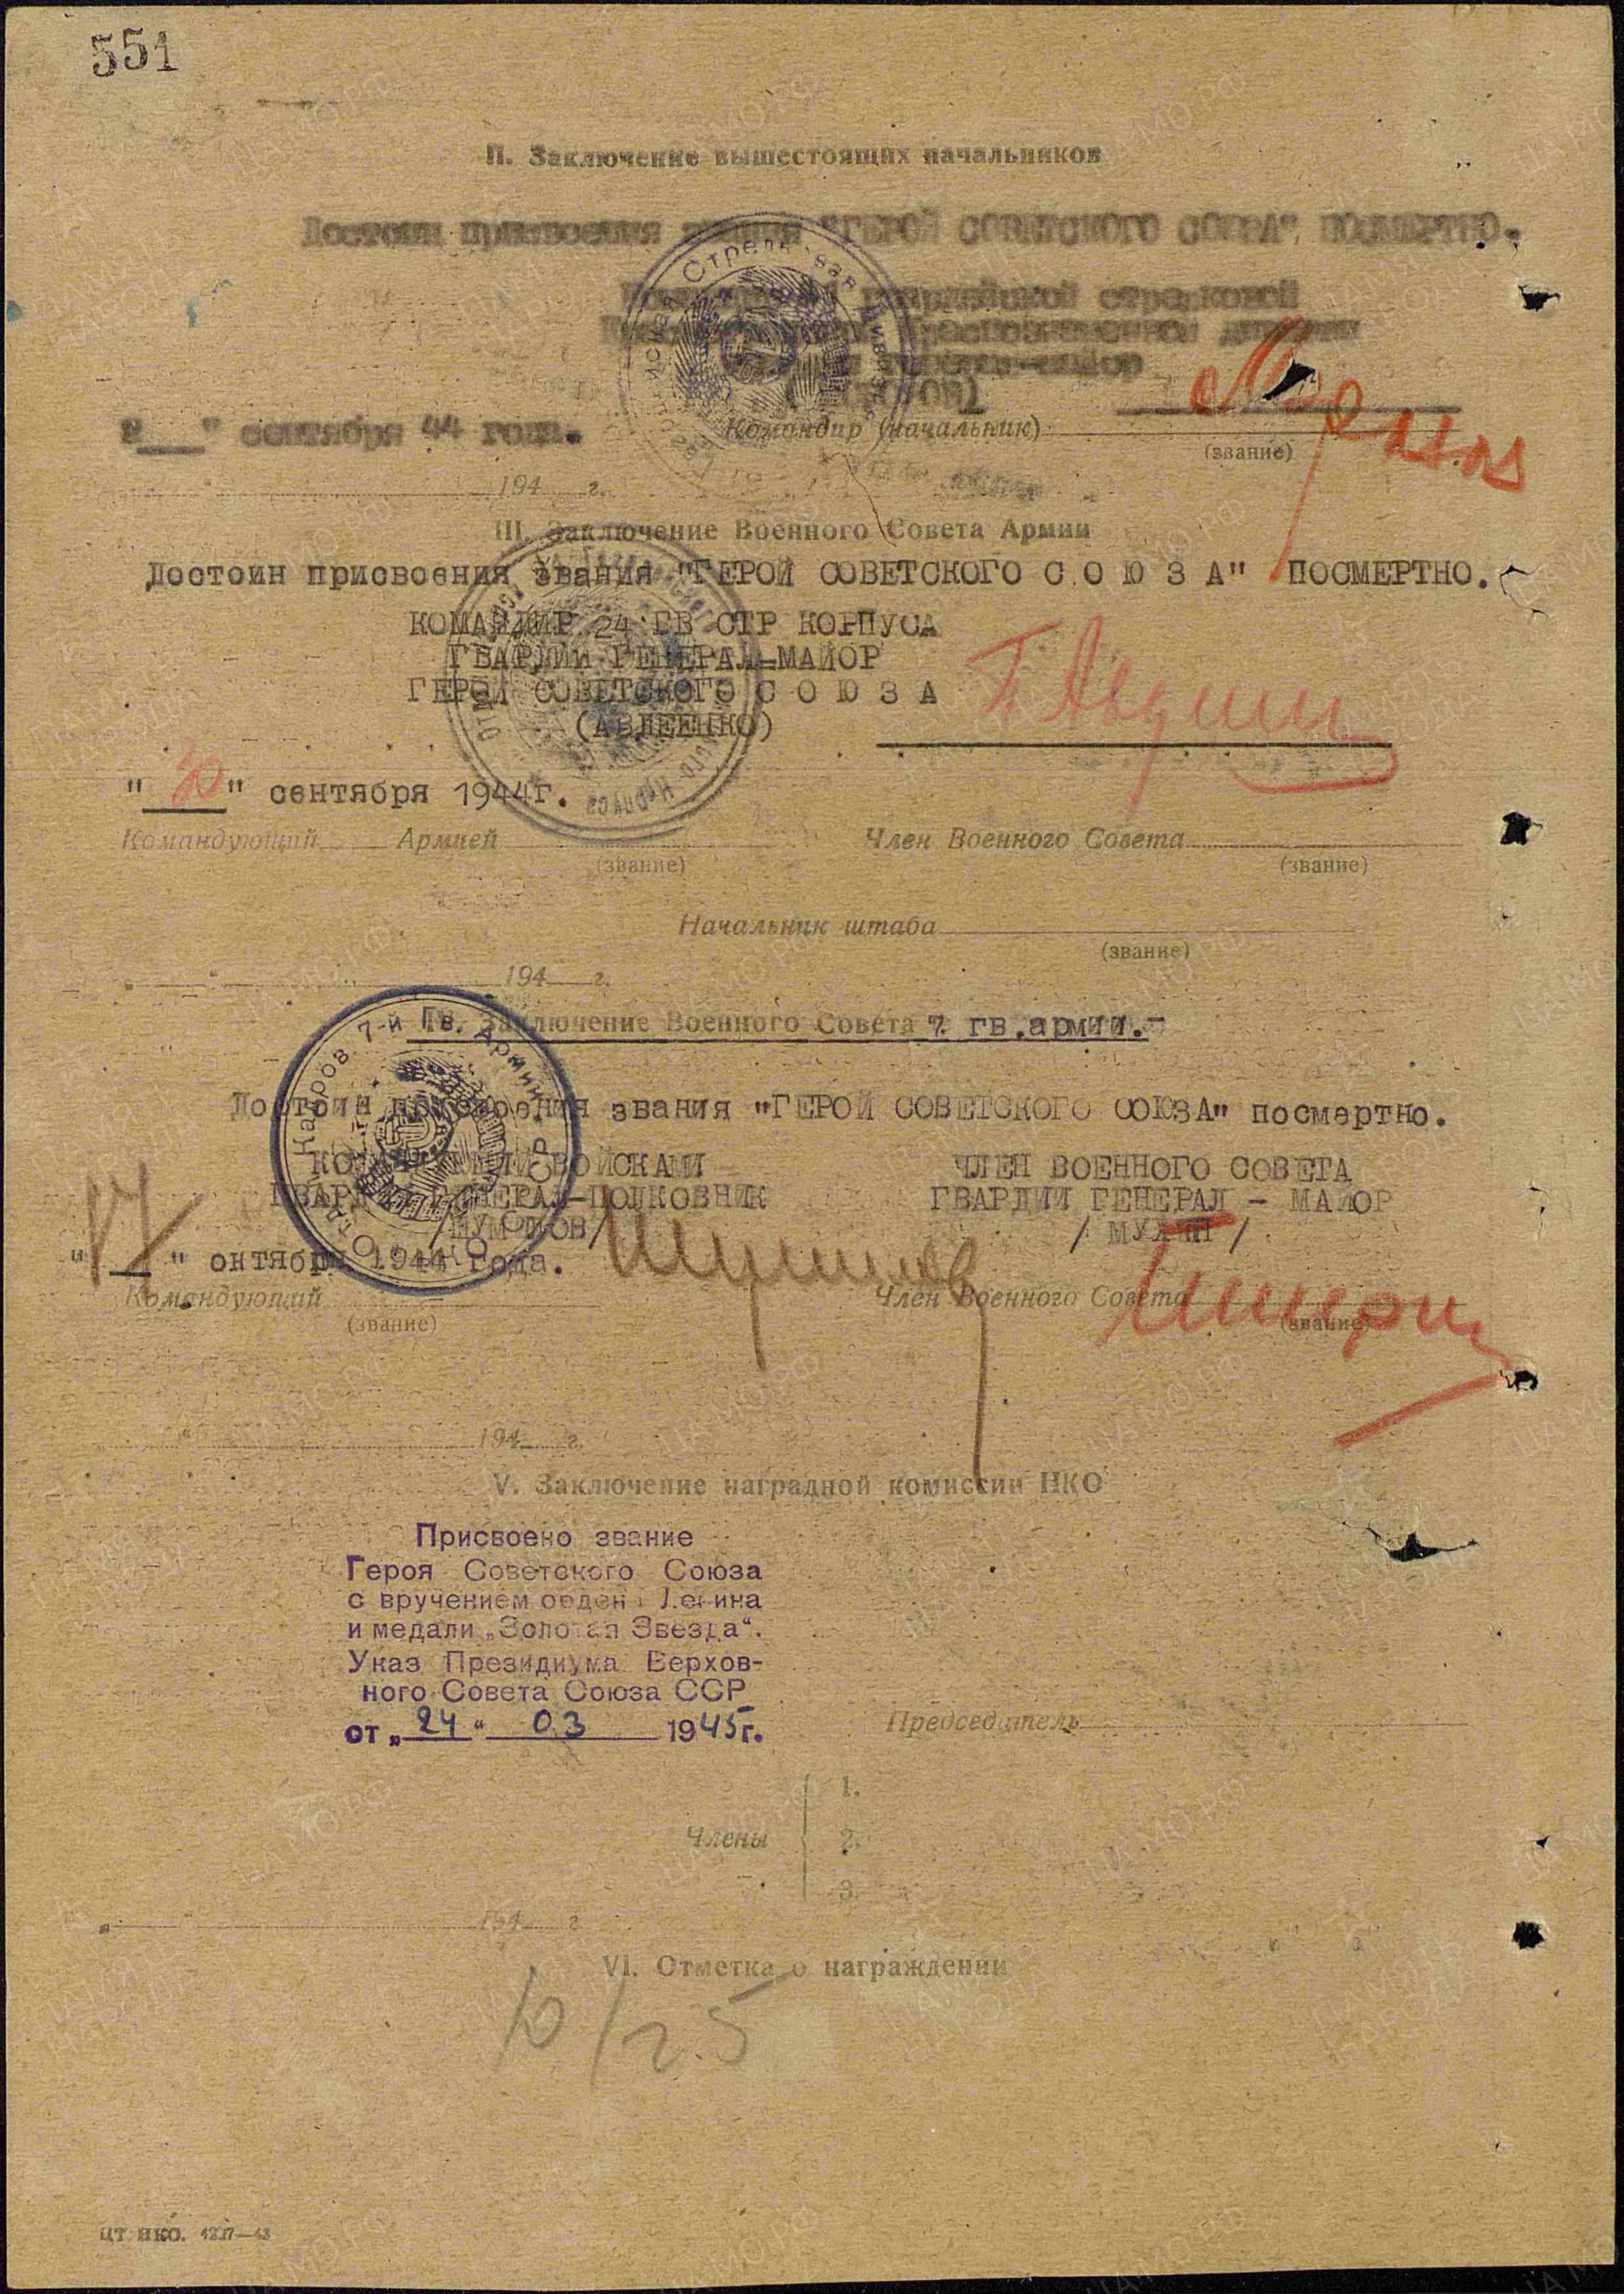 551
II. Заключение вышестоящих начальников
Достоин присвоения звания "ГЕРОЙ СОВЕТСКОГО СОЮЗА" ПОСМЕРТНО.
гвардейской стрелковой
Краснознаменной дивизии
генерал-майор
"___" сентября 44 года.
Командир (начальник)
(звание)
194 г.
III. Заключение Военного Совета Армии
Достоин присвоения звания "ГЕРОЙ СОВЕТСКОГО С О Ю З А" ПОСМЕРТНО.
КОМАНДИР 24 ГВ СТР КОРПУСА
ГВАРДИИ ГЕНЕРАЛ-МАЙОР
ГЕРОЙ СОВЕТСКОГО С О Ю З А
(АВДЕЕНКО)
"30" сентября 1944г.
Командующий Армией
(звание)
Член Военного Совета
(звание)
Начальник штаба
(звание)
194 г.
IV. Заключение Военного Совета 7 гв.армии.-
Достоин присвоения звания "ГЕРОЙ СОВЕТСКОГО СОЮЗА" посмертно.
ВОЙСКАМИ ЧЛЕН ВОЕННОГО СОВЕТА
ГВАРДИИ ГЕНЕРАЛ-ПОЛКОВНИК ГВАРДИИ ГЕНЕРАЛ - МАЙОР
/ШУМИЛОВ/ / МУХИН /
"17" октября 1944 года.
Командующий
(звание)
Член Военного Совета
(звание)
194 г.
V. Заключение наградной комиссии НКО
Присвоено звание
Героя Советского Союза
с вручением ордена Ленина
и медали „Золотая Звезда“.
Указ Президиума Верхов-
ного Совета Союза ССР
от „24“ 03 1945г.
Председатель
Члены
1.
2.
3.
194 г.
VI. Отметка о награждении
10/25
ЦТ НКО. 4217—43